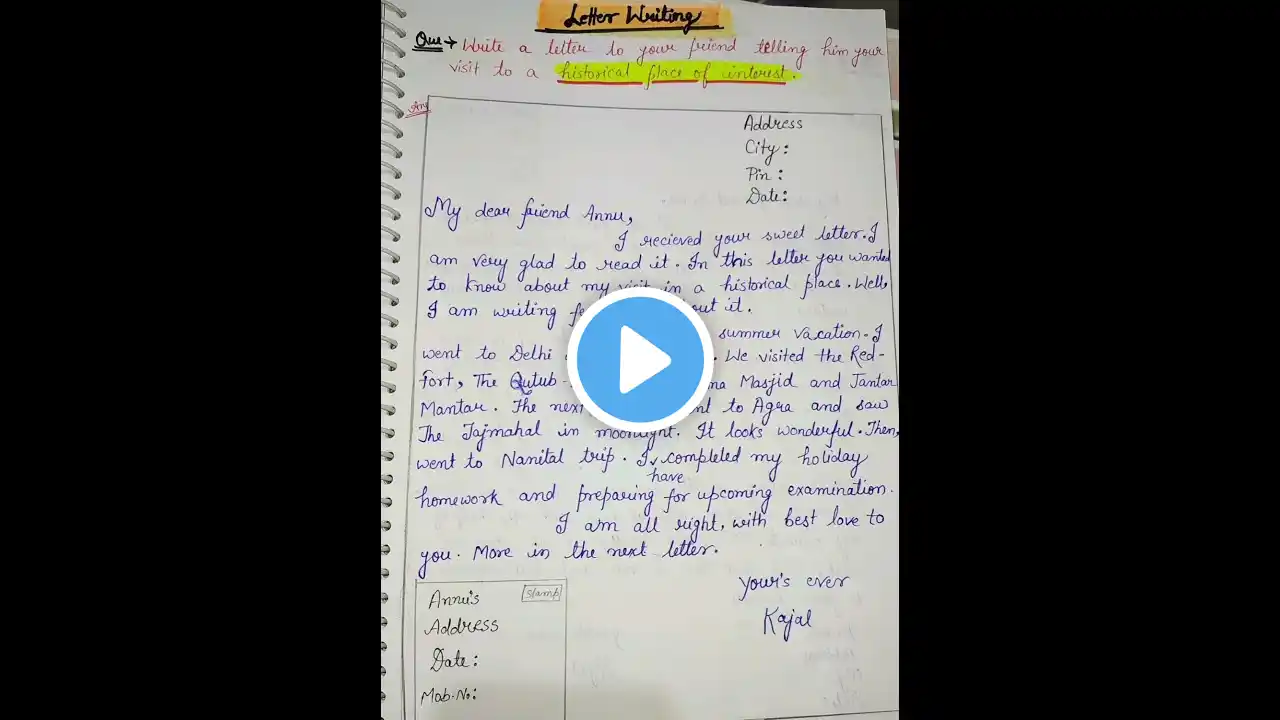 Letter Writing
Que → Write a letter to your friend telling him your
visit to a historical place of interest.
Ans
Address
City :
Pin :
Date:
My dear friend Annu,
I recieved your sweet letter. I
am very glad to read it. In this letter you wanted
to know about my visit in a historical place. Well,
I am writing out it.
summer vacation. I
went to Delhi . We visited the Red-
fort, The Qutub- Masjid and Jantar
Mantar. The next to Agra and saw
The Tajmahal in moonlight. It looks wonderful. Then,
went to Nanital trip. I completed my holiday
have
homework and preparing for upcoming examination.
I am all right, with best love to
you. More in the next letter.
Your's ever
Kajal
Annu's
stamp
Address
Date :
Mob. No: